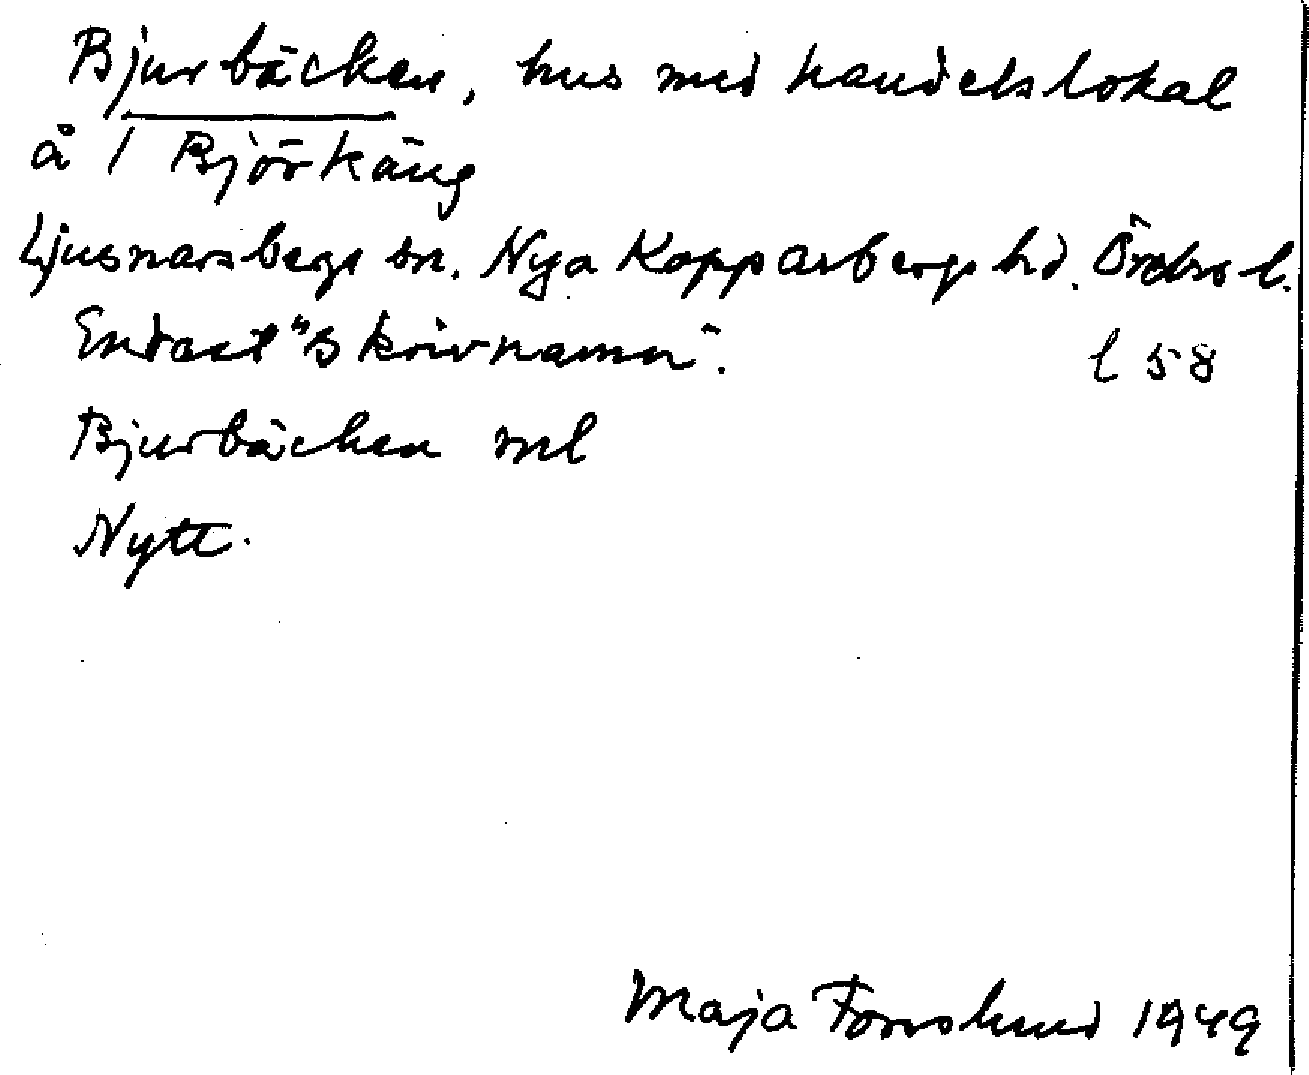 Bjurbäcken, hus med handelslokal
å 1 Björkäng
Ljusnarsbergs sn. Nya Kopparbergs hd. Örebro l.
Endast "skrivnamn".
l 58
Bjurbäcken ml
Nytt.
Maja Forsslund 1949